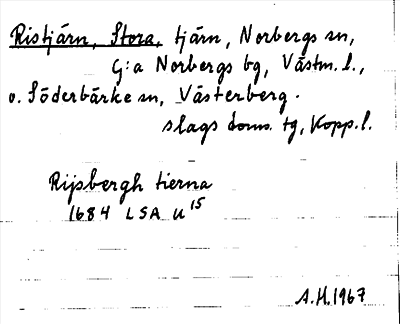 Ristjärn, Stora, tjärn, Norbergs sn,
G:a Norbergs bg, Västm. l.,
o. Söderbärke sn, Västerberg-
slags doms. tg, Kopp. l.
Rijsbergh tierna
1684 LSA U 15
A.H. 1967